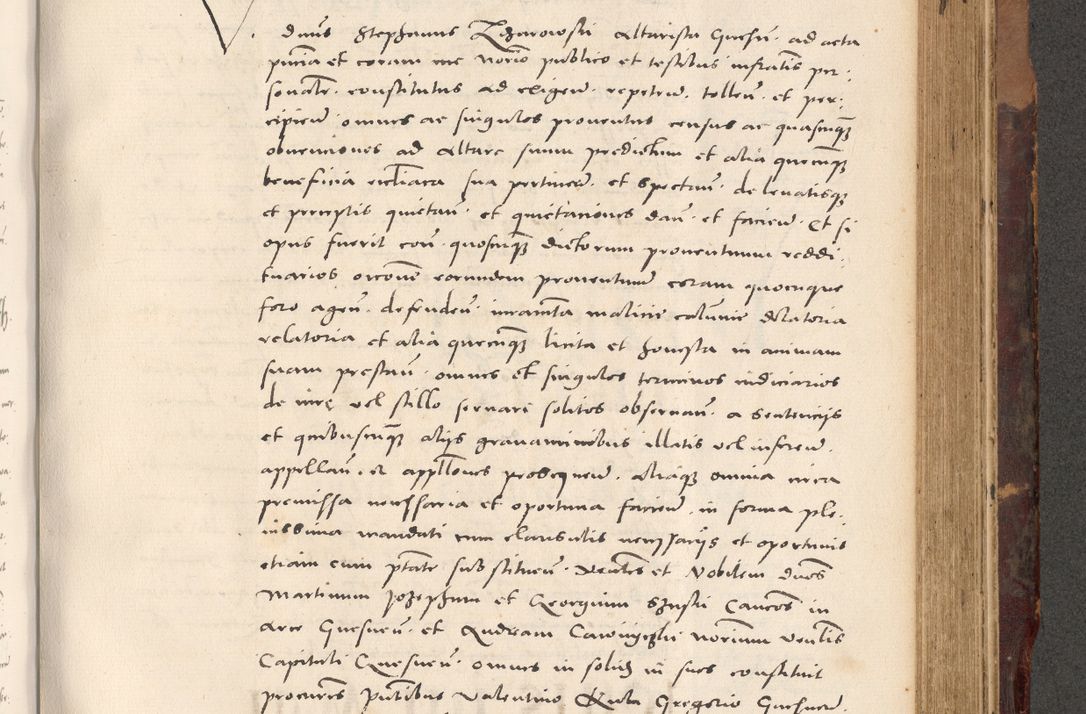 dnus Stephanus Zdzarowski Altarista Gnesn. ad acta
pntia et coram me Notrio publico et testibus infratis per.
sonalr. constitutus ad eligen. repeten. tollen. et per.
cipien. omnes ac singulos proventus census ac quascunq
obvenciones ad Altare suum predictum et alia quecunq
beneficia ecclsiaca sua pertinen. et spectan. de levatisq
et perceptis quietan. et quietaciones dan. et facien. Et si
opus fuerit con. quoscunq dictorum proventuum reddi.
tuarios occone eorundem proventuum coram quocunque
foro agen. defenden. iuramta malicie calumnie dilatoria
relatoria et alia quecunq licita et honesta in animam
suam prestan. omnes et singulos terminos iudiciarios
de iure vel stillo servari solitos observan. a sentencijs
et quibuscunq alijs gravaminibus illatis vel inferen.
appellan. et applones prosequen. aliaq omnia circa
premissa necessaria et oportuna facien. in forma ple.
nissima mandati cum clausulis necessarijs et oportunis
etiam cum ptate substituen. Venles et Nobilem dnos
Martinum Jozephum et Georgium Cancos in
Arce Gnesnen. et Andream Notrium Venlis
Capituli Gnesnen. omnes in solid in suos constituit
procures Pntibus Valentino Gregorio Gnesnen.